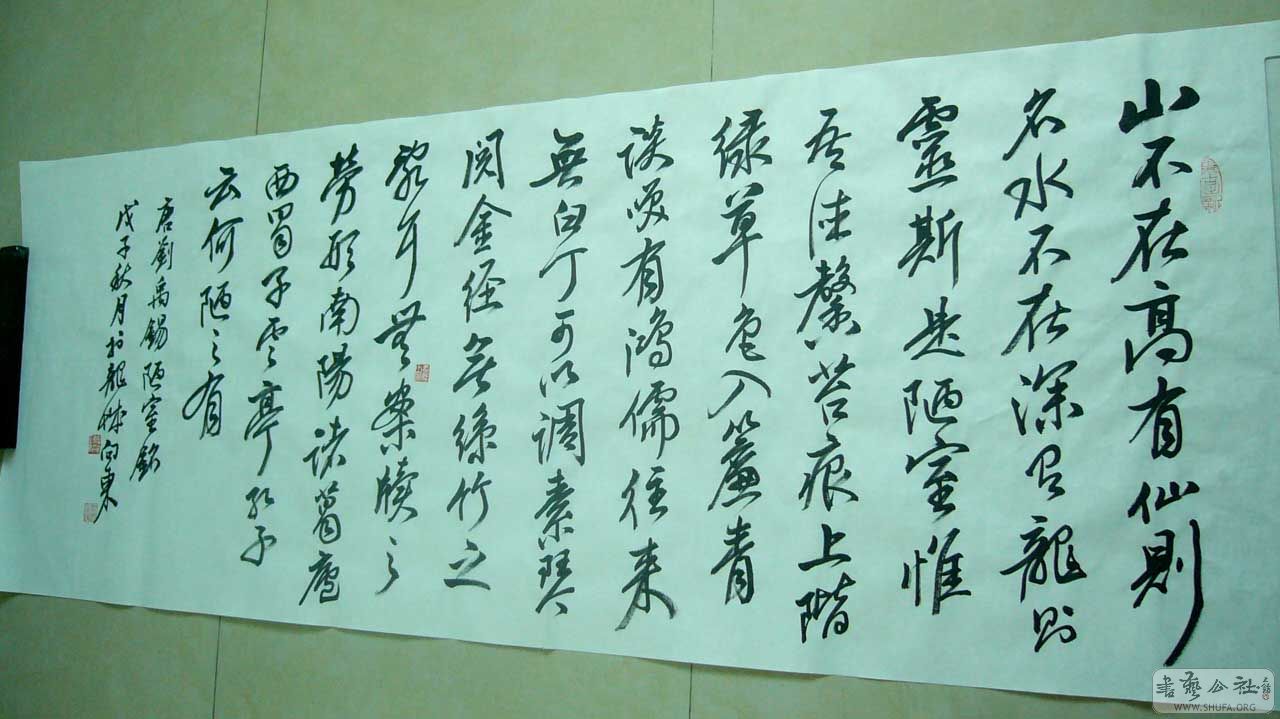 山不在高有仙則
名水不在深有龍則
靈斯是陋室惟
吾德馨苔痕上階
綠草色入簾青
談笑有鴻儒往来
無白丁可以調素琴
閱金經無絲竹之
亂耳無案牘之
勞形南陽諸葛廬
西蜀子雲亭孔子
云何陋之有
唐劉禹錫陋室銘
戊子秋月於龍城向東
書艺公社
WWW.SHUFA.ORG